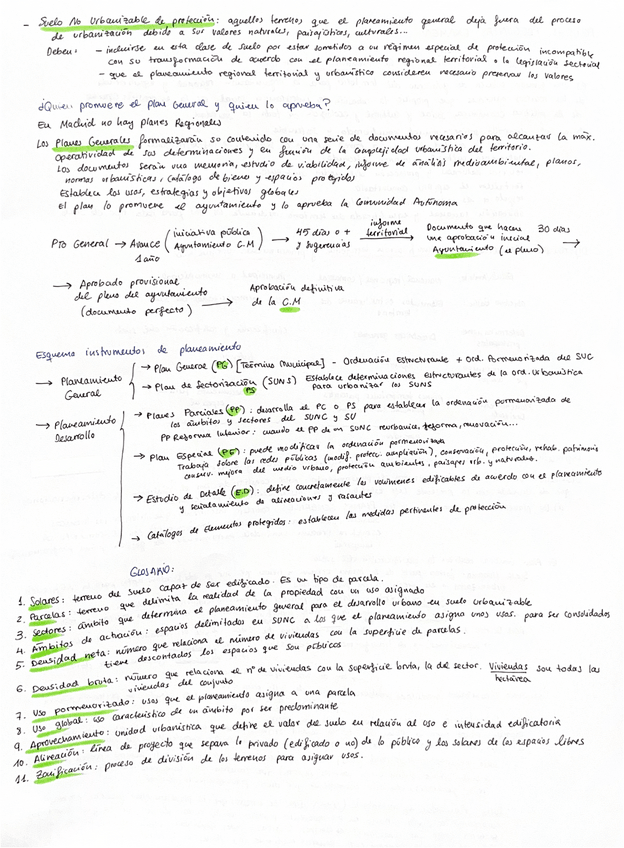 - Suelo No Urbanizable de protección: aquellos terrenos que el planeamiento general deja fuera del proceso
de urbanización debido a sus valores naturales, paisajísticos, culturales...
Deben: - incluirse en esta clase de suelo por estar sometidos a un régimen especial de protección incompatible
con su transformación de acuerdo con el planeamiento regional territorial o la legislación sectorial
- que el planeamiento regional territorial y urbanístico consideren necesario preservar los valores
¿Quién promueve el Plan General y quien lo aprueba?
En Madrid no hay planes Regionales
Los Planes Generales formalizarán su contenido con una serie de documentos necesarios para alcanzar la max.
operatividad de sus determinaciones y en función de la complejidad urbanística del territorio.
Los documentos serán una memoria, estudio de viabilidad, informe de análisis medioambiental, planos,
normas urbanísticas, catálogo de bienes y espacios protegidos
Establece los usos, estrategias y objetivos globales
El plan lo promueve el ayuntamiento y lo aprueba la Comunidad Autónoma
Pto General → Avance (iniciativa pública Ayuntamiento C.M) → 45 días o + y sugerencias → informe territorial → Documento que hacen una aprobación inicial Ayuntamiento (el pleno) 30 días →
1 año
→ Aprobado provisional del pleno del ayuntamiento (documento perfecto) → Aprobación definitiva de la C.M
Esquema instrumentos de planeamiento
→ Planeamiento General
→ Plan General (PG) [Término Municipal] - Ordenación Estructurante + Ord. Pormenorizada del SUC
→ Plan de Sectorización (SUNS) Establece determinaciones estructurantes de la ord. Urbanística
PS para urbanizar los SUNS
→ Planeamiento Desarrollo
→ Planes Parciales (PP): desarrolla el PC o PS para establecer la ordenación pormenorizada de
los ámbitos y sectores del SUNC y SU
PP Reforma Interior: cuando el PP de un SUNC reurbanice, reforma, renovación...
→ Plan Especial (PE): puede modificar la ordenación pormenorizada
Trabaja sobre las redes públicas (modif. protecc. ampliación), conservación, protección, rehab. patrimonio
conserv. mejora del medio urbano, protección ambientes, paisajes urb. y naturales.
→ Estudio de Detalle (E.D): define concretamente los volúmenes edificables de acuerdo con el planeamiento
y señalamiento de alineaciones y rasantes
→ Catálogos de Elementos protegidos: establecen las medidas pertinentes de protección
GLOSARIO:
1. Solares: terreno del suelo capaz de ser edificado. Es un tipo de parcela.
2. Parcelas: terreno que delimita la realidad de la propiedad con un uso asignado
3. Sectores: ámbito que determina el planeamiento general para el desarrollo urbano en suelo urbanizable
4. Ámbitos de actuación: espacios delimitados en SUNC a los que el planeamiento asigna unos usos. para ser consolidados
5. Densidad neta: número que relaciona el número de viviendas con la superficie de parcelas.
tiene descontados los espacios que son públicos
6. Densidad bruta: número que relaciona el nº de viviendas con la superficie bruta, la del sector. Viviendas/hectárea son todas las
viviendas del conjunto
7. Uso pormenorizado: usos que el planeamiento asigna a una parcela
8. Uso global: uso característico de un ámbito por ser predominante
9. Aprovechamiento: unidad urbanística que define el valor del suelo en relación al uso e intensidad edificatoria
10. Alineación: línea de proyecto que separa lo privado (edificado o no) de lo público y los solares de los espacios libres
11. Zonificación: proceso de división de los terrenos para asignar usos.